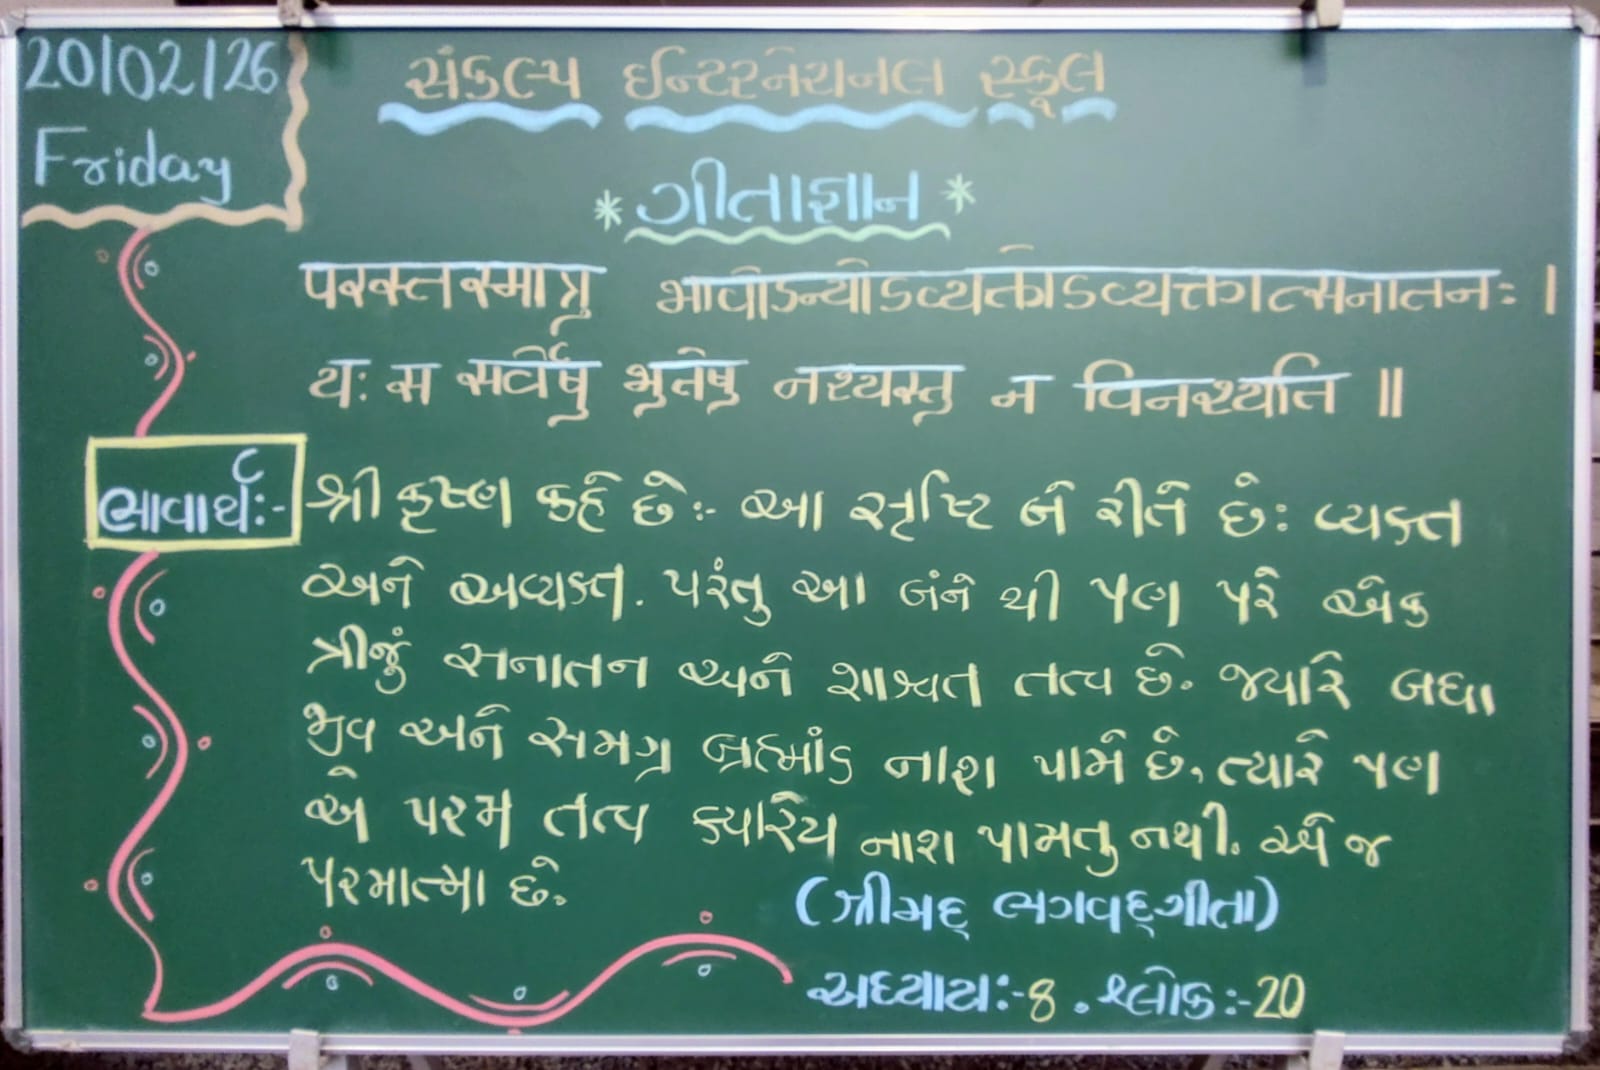 20/02/26
Friday
સંકલ્પ ઈન્ટરનેશનલ સ્કૂલ
* ગીતાજ્ઞાન *
परस्तस्मात्तु भावोऽन्योऽव्यक्तोऽव्यक्तात्सनातनः ।
यः स सर्वेषु भुतेषु नश्यस्तु न विनश्यति ॥
ભાવાર્થ:-
શ્રી કૃષ્ણ કહે છે:- આ સૃષ્ટિ બે રીતે છે: વ્યક્ત
અને અવ્યક્ત. પરંતુ આ બંને થી પણ પરે એક
ત્રીજું સનાતન અને શાશ્વત તત્વ છે. જ્યારે બધા
જીવ અને સમગ્ર બ્રહ્માંડ નાશ પામે છે, ત્યારે પણ
એ પરમ તત્વ ક્યારેય નાશ પામતુ નથી. એ જ
પરમાત્મા છે.
(શ્રીમદ્ ભગવદ્ગીતા)
અધ્યાય:-8 . શ્લોક:-20